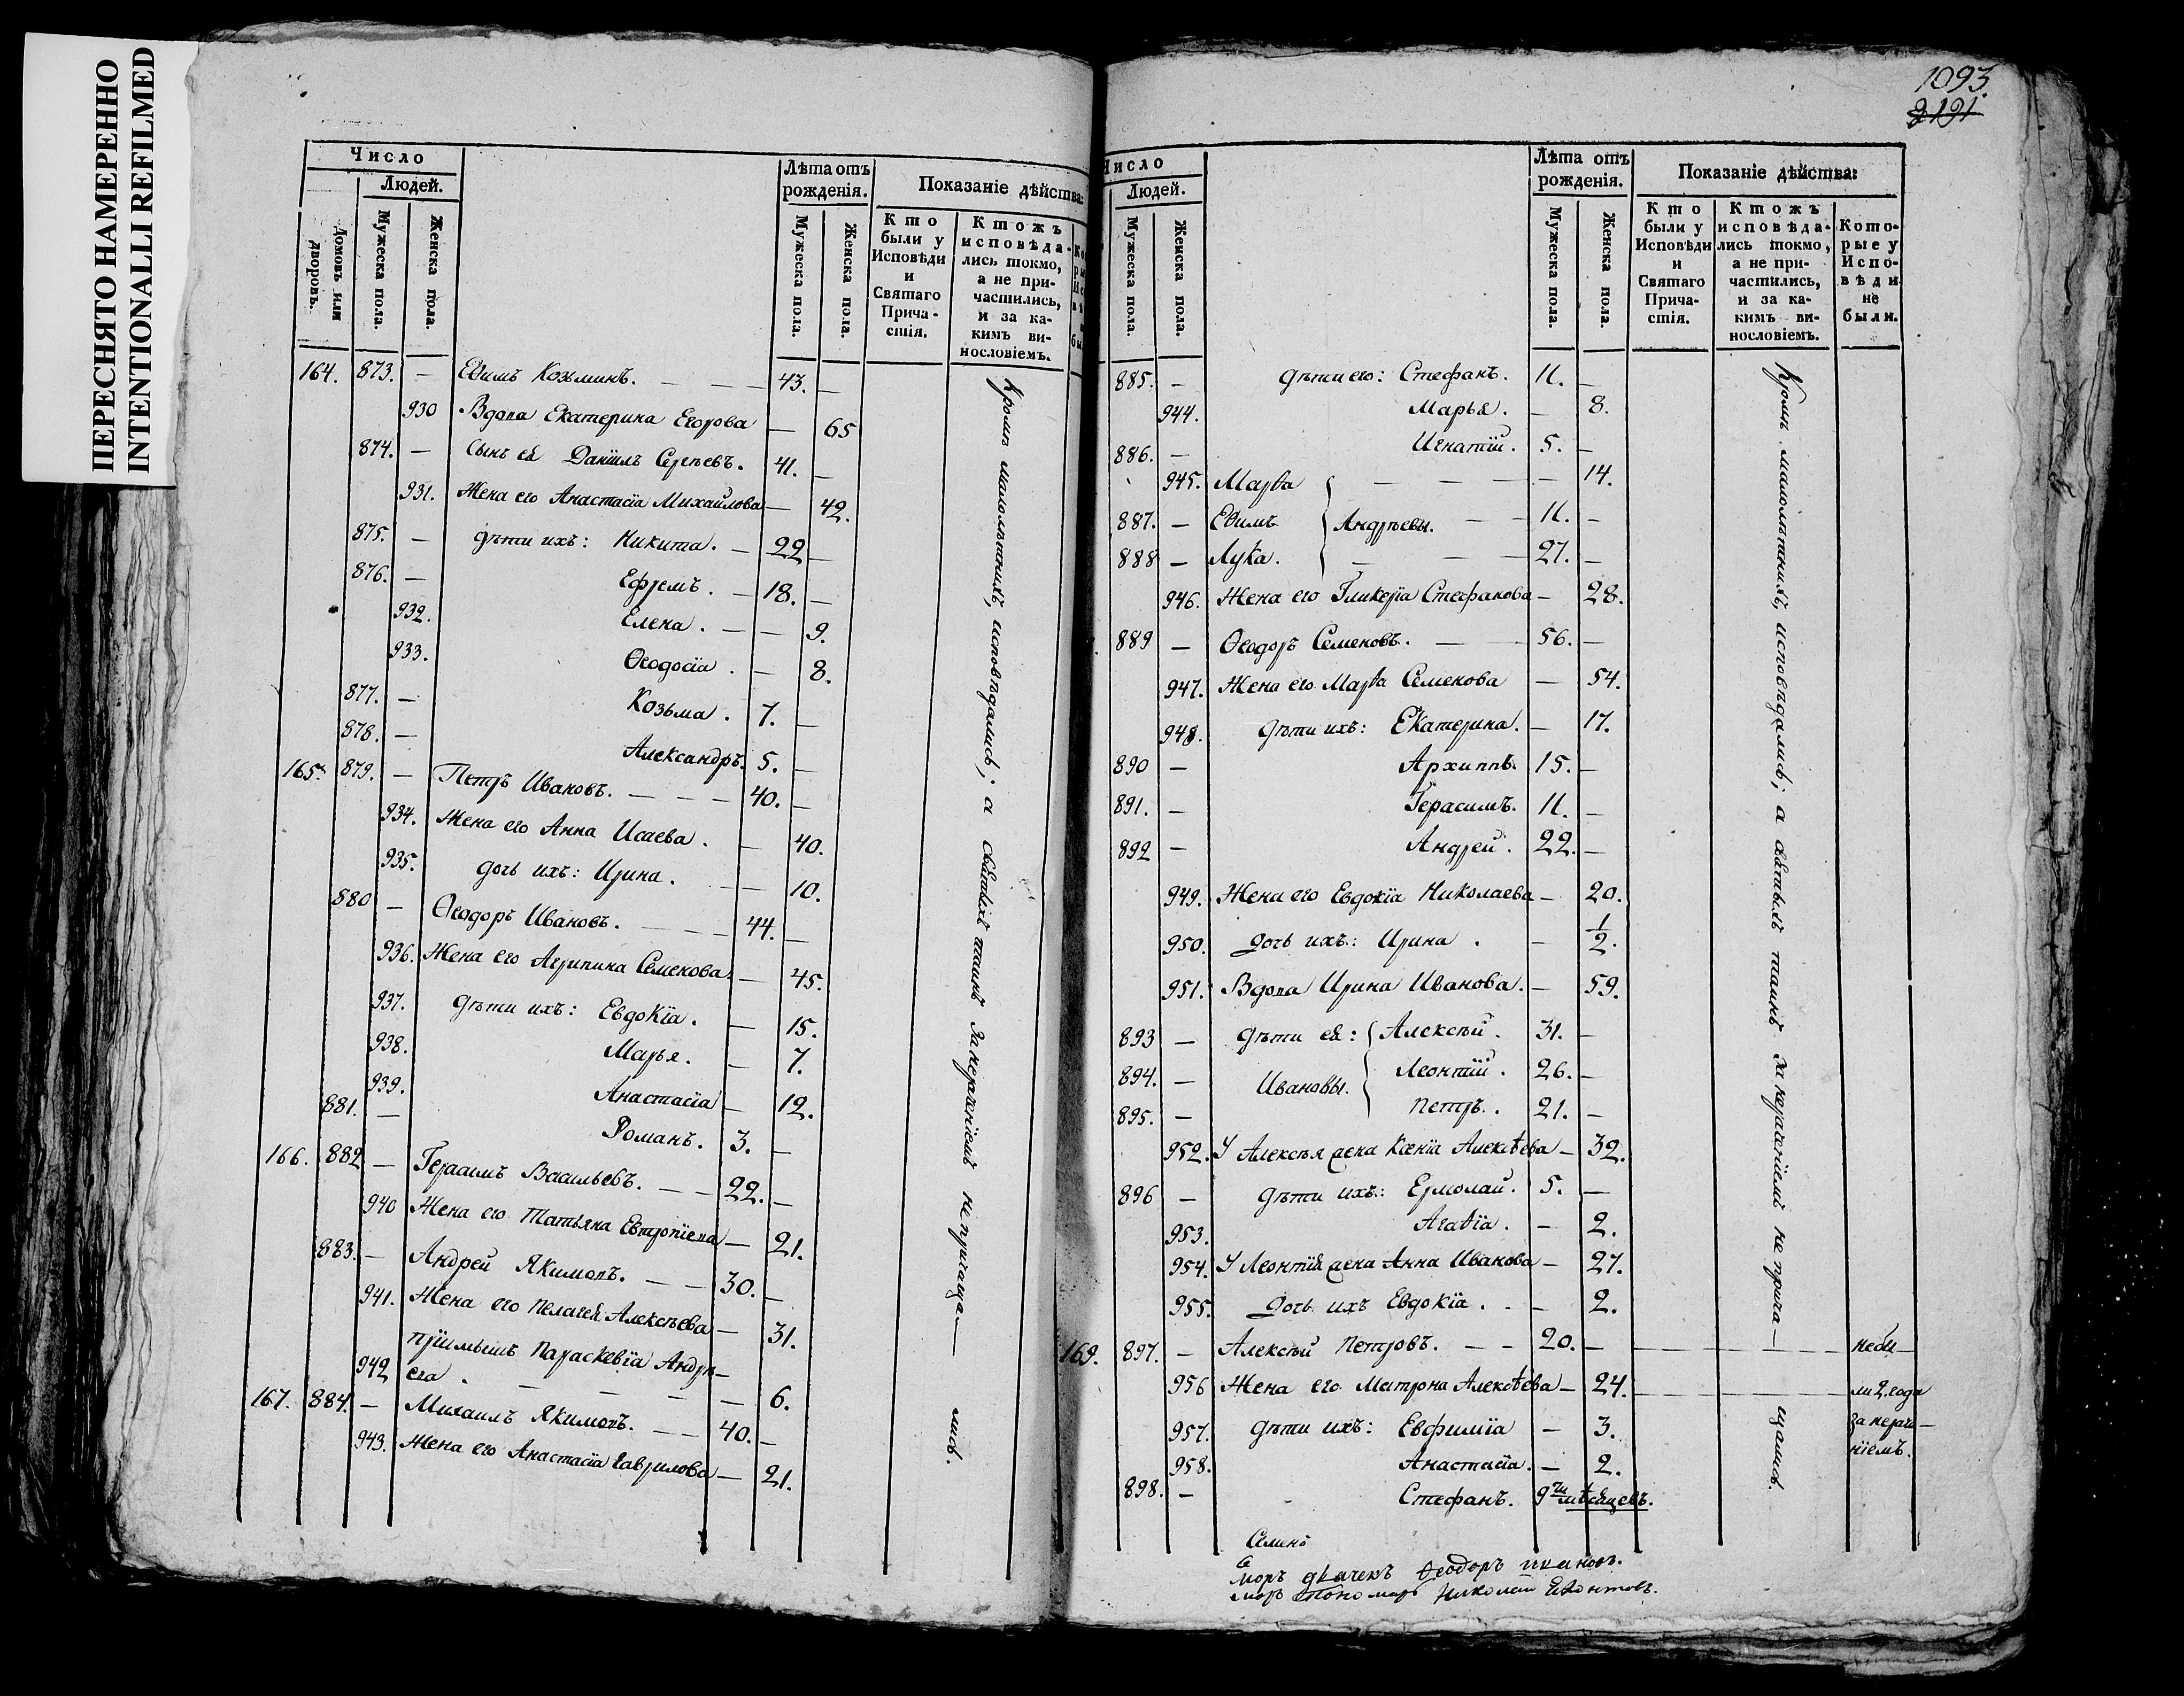 ПЕРЕСНЯТО НАМЕРЕННО
INTENTIONALLI REFILMED
Число
Людей.
Домовъ или дворовъ.
Мужеска пола.
Женска пола.
Лѣта отъ рожденія.
Мужеска пола.
Женска пола.
Показаніе дѣйства:
Кто были у Исповѣди и Святаго Прича-стія.
Ктожъ исповѣда-лись токмо, а не при-частились, и за ка-кимъ ви-нословіемъ.
164. 873. — Еѳимъ Козьминъ. — — — 43. —
930 Вдова Екатерина Егорова — 65
874. — Сынъ ея Даніилъ Сергѣевъ. 41. —
931. Жена его Анастасіа Михайлова — 42.
875. — Дѣти ихъ: Никита. — 22 —
876. — Ефремъ. — 18. —
932. Елена. — — 9.
933. Ѳеодосіа. — 8.
877. — Козьма. 7. —
878. — Александръ. 5. —
165. 879. — Петръ Ивановъ. — — — 40. —
934. Жена его Анна Исаева. — 40.
935. Дочь ихъ: Ирина. — — 10.
880 — Ѳеодоръ Ивановъ. — — — 44. —
936. Жена его Агрипина Семенова. — 45.
937. Дѣти ихъ: Евдокіа. — 15.
938. Марья. — 7.
939. Анастасіа — 12.
881. — Романъ. 3. —
166. 882 — Герасимъ Васильевъ. — — 22. —
940 Жена его Татьяна Евтропіева — 21.
883. — Андрей Якимовъ. — — 30. —
941. Жена его Пелагея Алексѣева — 31.
пріимышъ Параскевіа Андрѣ-
942 ева. — — — — 6.
167. 884. — Михаилъ Якимовъ. — — 40. —
943. Жена его Анастасіа Гаврилова — 21.
Кромѣ малолѣтнихъ, исповѣдались; а святыхъ таинъ за нераченіемъ не причаща — лись.
1093.
2191
Число
Людей.
Мужеска пола.
Женска пола.
Лѣта отъ рожденія.
Мужеска пола.
Женска пола.
Показаніе дѣйства:
Кто были у Исповѣди и Святаго Прича-стія.
Ктожъ исповѣда-лись токмо, а не при-частились, и за ка-кимъ ви-нословіемъ.
Кото-рые у Испо-вѣди не были.
885. — Дѣти его: Стефанъ. 11. —
944. Марья. — 8.
886. — Игнатій. 5. —
945. Марѳа — — — — 14.
887. — Еѳимъ Андрѣевы. — — 11. —
888 — Лука. — — — 27. —
946. Жена его Гликеріа Стефанова — 28.
889 — Ѳеодоръ Семеновъ. — — 56. —
947. Жена его Марѳа Семенова — 54.
948. Дѣти ихъ: Екатерина. — 17.
890 — Архиппъ. 15. —
891. — Герасимъ. 11. —
892 — Андрей. 22. —
949. Жена его Евдокіа Николаева — 20.
950. Дочь ихъ: Ирина. — 1/2.
951. Вдова Ирина Иванова. — 59.
893 — Дѣти ея: Алексѣй. 31. —
894. — Ивановы. Леонтій. 26. —
895. — Петръ. 21. —
952. У Алексѣя жена Ксеніа Алексѣева — 32.
896 — Дѣти ихъ: Ермолай. 5. —
953. Агаѳіа. — 2.
954. У Леонтія жена Анна Иванова — 27.
955. Дочь ихъ Евдокіа. — — 2.
169. 897. — Алексѣй Петровъ. — — 20. — небы-
956 Жена его Матрона Алексѣева — 24. ли 2. года
957. Дѣти ихъ: Евфиміа — 3. за нераче-
958. Анастасіа. — 2. ніемъ.
898. — Стефанъ. 9ти мѣсяцевъ.
Кромѣ малолѣтнихъ, исповѣдались; а святыхъ таинъ за нераченіемъ не прича — щались.
Семенъ
дьячекъ Ѳеодоръ Ивановъ.
Пономарь Николай